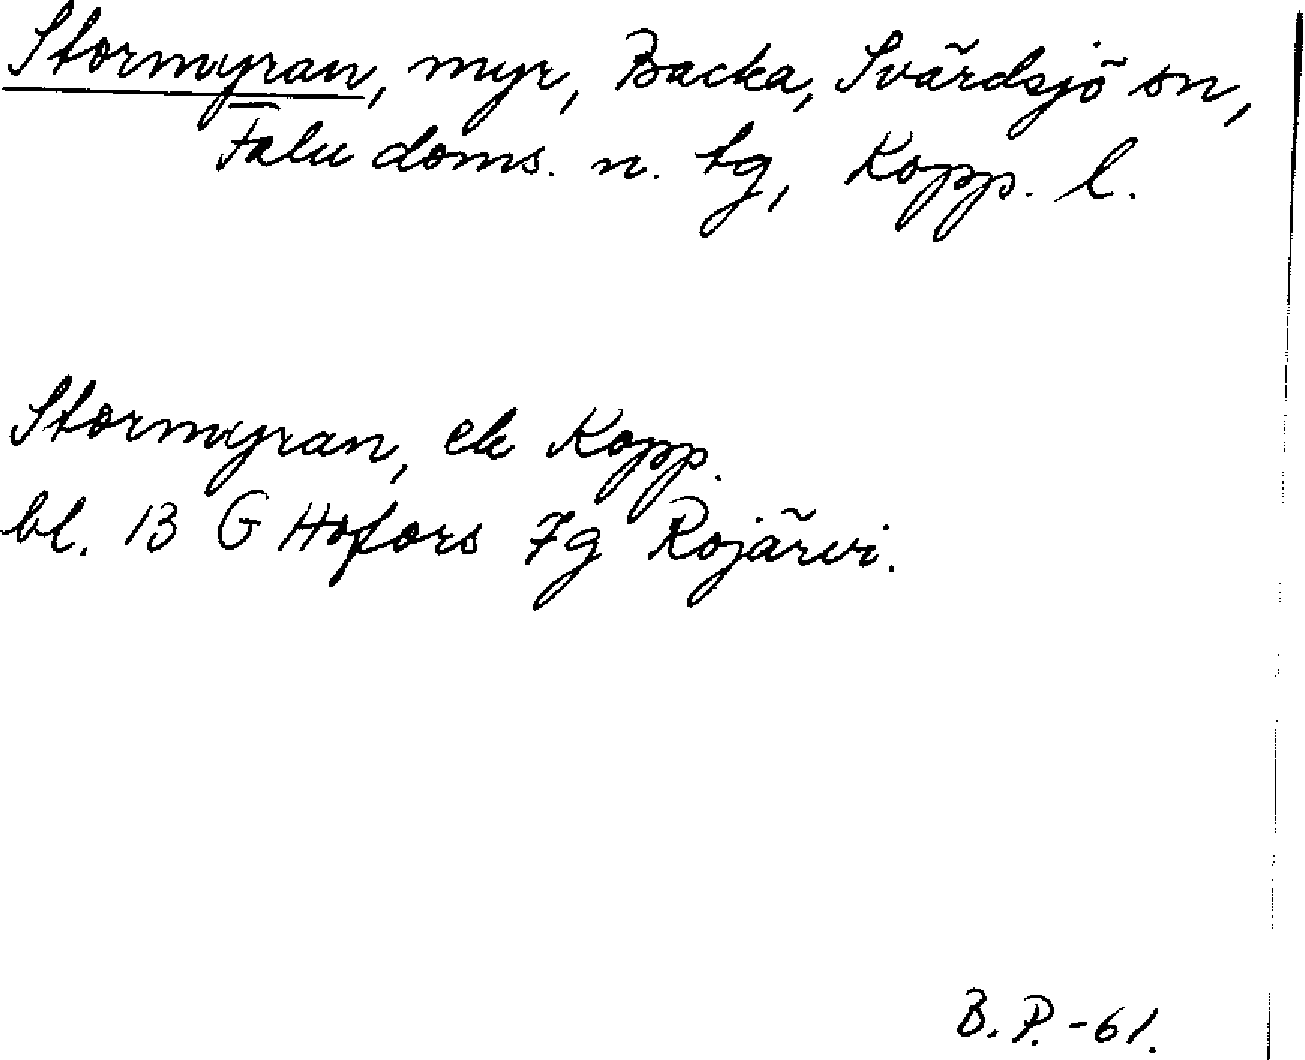 Stormyran, myr, Backa, Svärdsjö sn,
Falu doms. n. tg, Kopp. l.
Stormyran, ek Kopp.
bl. 13 G Hofors 7g Rojärvi.
B. P. -61.